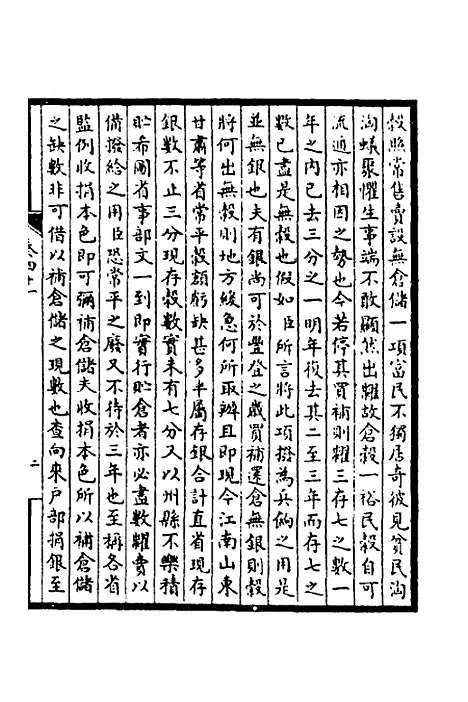 穀照常售賣設無倉儲一項富民不獨居奇彼見貧民洶
洶蟻聚懼生事端不敢顯然出糶故倉穀一裕民穀自可
流通亦相因之勢也今若停其買補則糶三存七之數一
年之內已去三分之一明年復去其二至三年而存七之
數已盡是無穀也假如臣所言將此項撥為兵餉之用是
並無銀也夫有銀尚可於豐登之歲買補還倉無銀則穀
將何出無穀則地方緩急何所取辦且即現今江南山東
甘肅等省常平穀額虧缺甚多半屬存銀合計直省現存
銀數不止三分現存穀數實未有七分又以州縣不樂積
貯希圖省事部文一到即實行貯倉者亦必盡數糶賣以
備撥給之用臣恐常平之廢又不待於三年也至稱各省
監例收捐本色即可彌補倉儲夫收捐本色所以補倉儲
之缺數非可借以補倉儲之現數也查向來戶部捐銀至
卷四十一
二